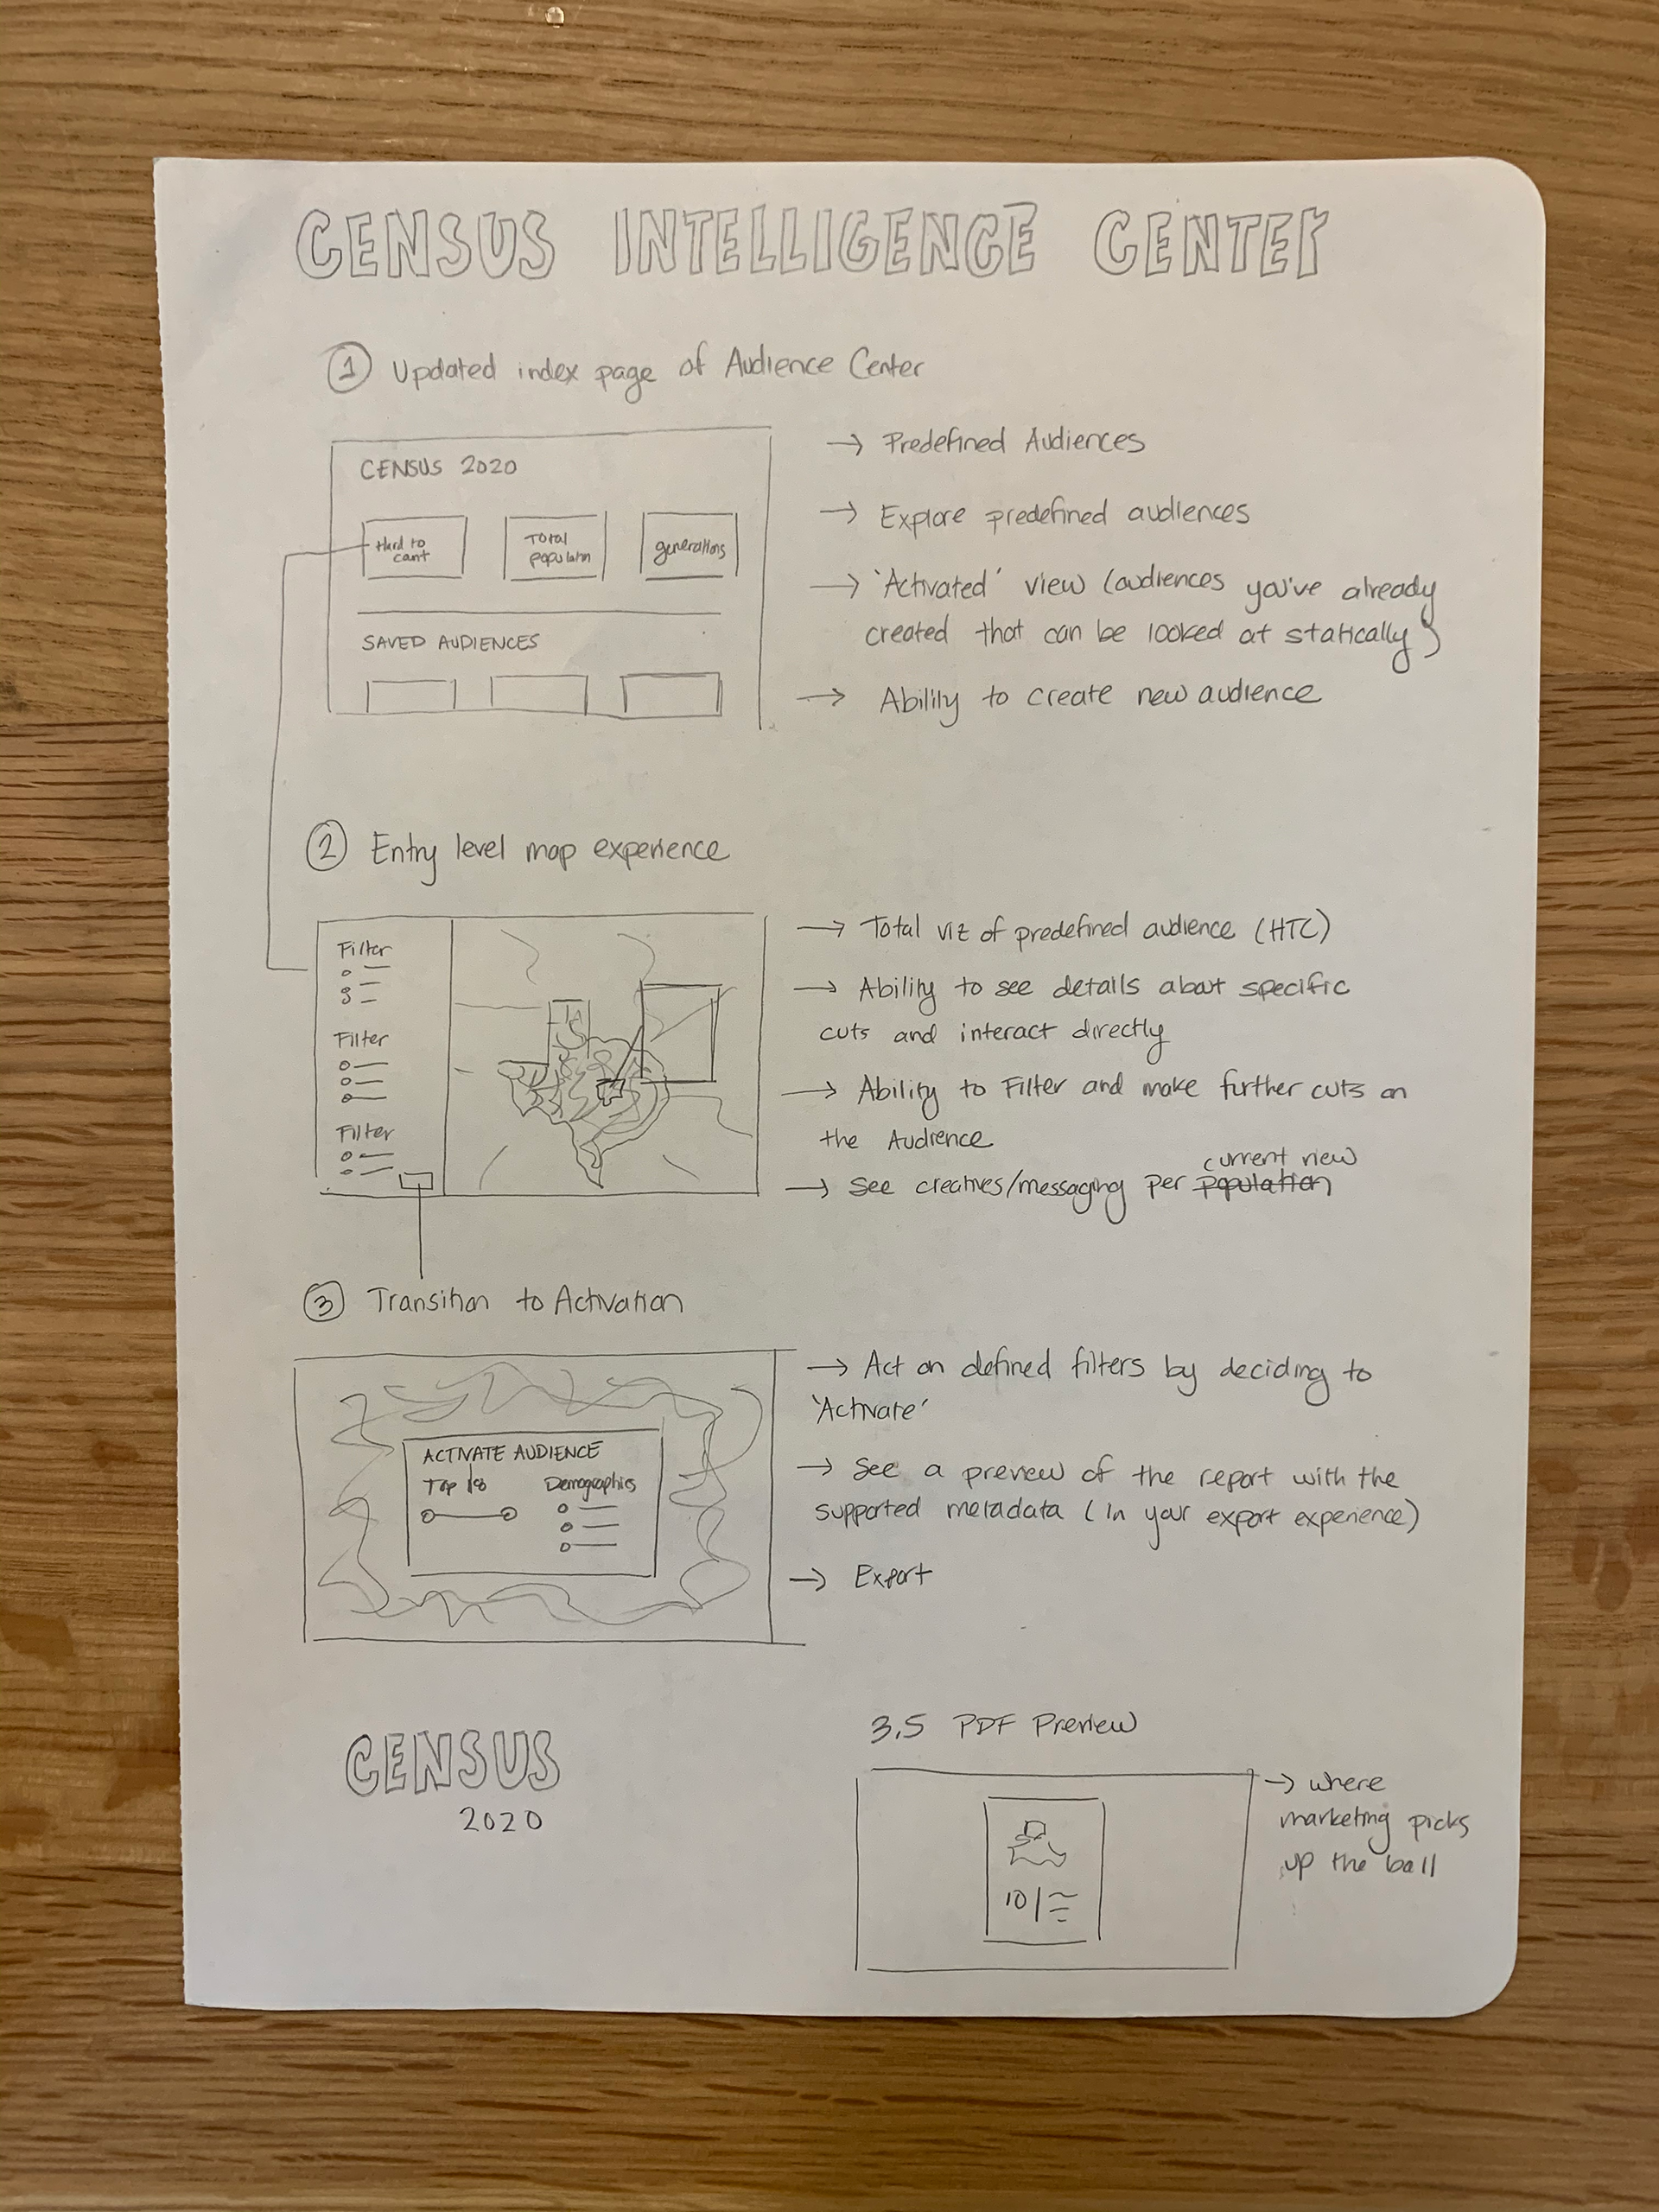 CENSUS INTELLIGENCE CENTER
1 Updated index page of Audience Center
CENSUS 2020
Hard to
count
Total
population
generations
SAVED AUDIENCES
→ Predefined Audiences
→ Explore predefined audiences
→ 'Activated' view (audiences you've already
created that can be looked at statically)
→ Ability to create new audience
2 Entry level map experience
Filter
Filter
Filter
→ Total viz of predefined audience (HTC)
→ Ability to see details about specific
cuts and interact directly
→ Ability to Filter and make further cuts on
the Audience
current new
→ See creatives/messaging per population
3 Transition to Activation
ACTIVATE AUDIENCE
Top 18
Demographics
→ Act on defined filters by deciding to
'Activate'
→ See a preview of the report with the
supported metadata (in your export experience)
→ Export
CENSUS
2020
3.5 PDF Preview
10
→ where
marketing picks
up the ball